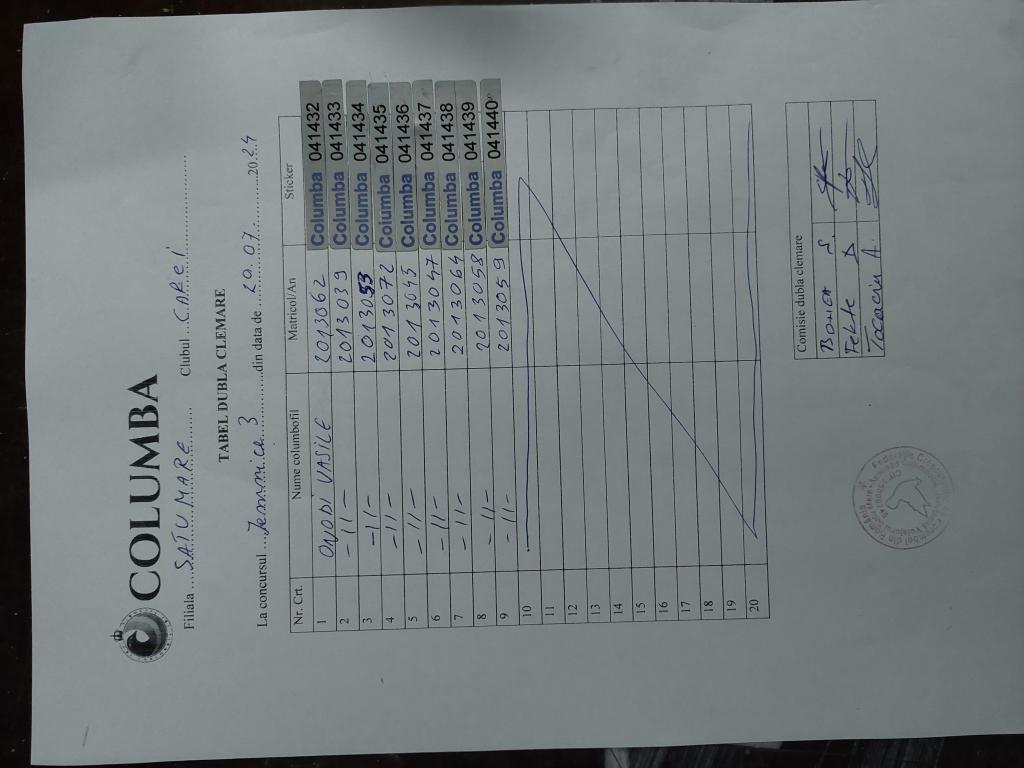 COLUMBA
Filiala ....SATU MARE.... Clubul....CAREI....
TABEL DUBLA CLEMARE
La concursul ....Jemnica 3....din data de ....20.07.....2024
Nr. Crt. Nume columbofil Matricol/An Sticker
1 ONODI VASILE 2013062 Columba 041432
2 -11- 2013039 Columba 041433
3 -11- 2013053 Columba 041434
4 -11- 2013072 Columba 041435
5 -11- 2013045 Columba 041436
6 -11- 2013047 Columba 041437
7 -11- 2013064 Columba 041438
8 -11- 2013058 Columba 041439
9 -11- 2013059 Columba 041440
10
11
12
13
14
15
16
17
18
19
20
Comisie dubla clemare
S.
D
A.